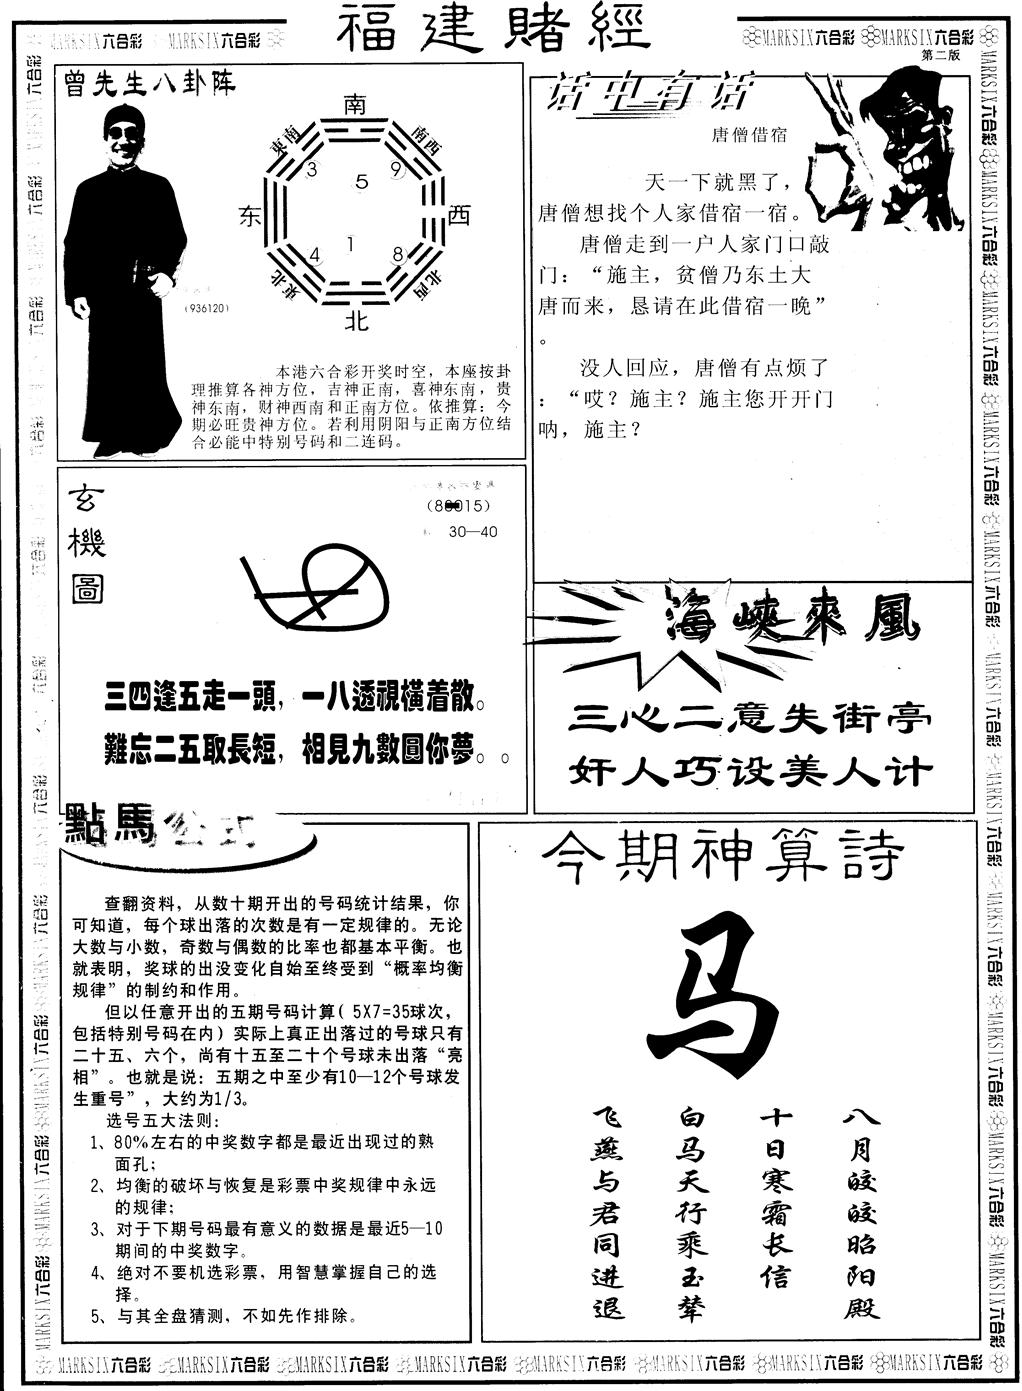 福建賭經
MARKSIX六合彩 MARKSIX六合彩
MARKSIX六合彩 MARKSIX六合彩
第二版
曾先生八卦阵
南
東南
南西
3
5
9
东
西
4
1
8
東北
北西
北
(936120)
本港六合彩开奖时空，本座按卦
理推算各神方位，吉神正南，喜神东南，贵
神东南，财神西南和正南方位。依推算：今
期必旺贵神方位。若利用阴阳与正南方位结
合必能中特别号码和二连码。
话中有话
唐僧借宿
天一下就黑了，
唐僧想找个人家借宿一宿。
唐僧走到一户人家门口敲
门：“施主，贫僧乃东土大
唐而来，恳请在此借宿一晚”
。
没人回应，唐僧有点烦了
：“哎？施主？施主您开开门
呐，施主？
玄機圖
30—40
三四逢五走一頭，一八透視橫着散。
難忘二五取長短，相見九數圓你夢。。
海峽來風
三心二意失街亭
奸人巧设美人计
點馬公式
查翻资料，从数十期开出的号码统计结果，你
可知道，每个球出落的次数是有一定规律的。无论
大数与小数，奇数与偶数的比率也都基本平衡。也
就表明，奖球的出没变化自始至终受到“概率均衡
规律”的制约和作用。
但以任意开出的五期号码计算（5X7=35球次，
包括特别号码在内）实际上真正出落过的号球只有
二十五、六个，尚有十五至二十个号球未出落“亮
相”。也就是说：五期之中至少有10—12个号球发
生重号”，大约为1/3。
选号五大法则：
1、80%左右的中奖数字都是最近出现过的熟
面孔；
2、均衡的破坏与恢复是彩票中奖规律中永远
的规律；
3、对于下期号码最有意义的数据是最近5—10
期间的中奖数字。
4、绝对不要机选彩票，用智慧掌握自己的选
择。
5、与其全盘猜测，不如先作排除。
今期神算詩
马
八月皎皎昭阳殿
十日寒霜长信
白马天行乘玉辇
飞燕与君同进退
MARKSIX六合彩 MARKSIX六合彩 MARKSIX六合彩 MARKSIX六合彩 MARKSIX六合彩 MARKSIX六合彩 MARKSIX六合彩 MARKSIX六合彩